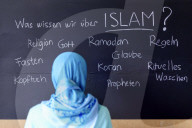 Was wissen wir über ISLAM?
Religion Gott Ramadan Regeln
Fasten Glaube
Koran Rituelles
Kopftuch Propheten Waschen